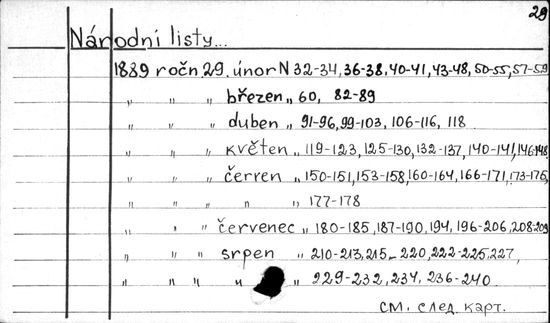 29
Národní listy...
1889 ročn. 29. únor N 32-34, 36-38, 40-41, 43-48, 50-55, 57-59
„ „ „ březen „ 60, 82-89
„ „ „ duben „ 91-96, 99-103, 106-116, 118
„ „ „ květen „ 119-123, 125-130, 132-137, 140-141, 146-148
„ „ „ černen „ 150-151, 153-158, 160-164, 166-171, 173-175,
„ „ „ „ „ 177-178
„ „ „ červenec „ 180-185, 187-190, 194, 196-206, 208-209
„ „ „ srpen „ 210-213, 215-220, 222-225, 227,
„ „ „ „ 229-232, 234, 236-240
см. след. карт.